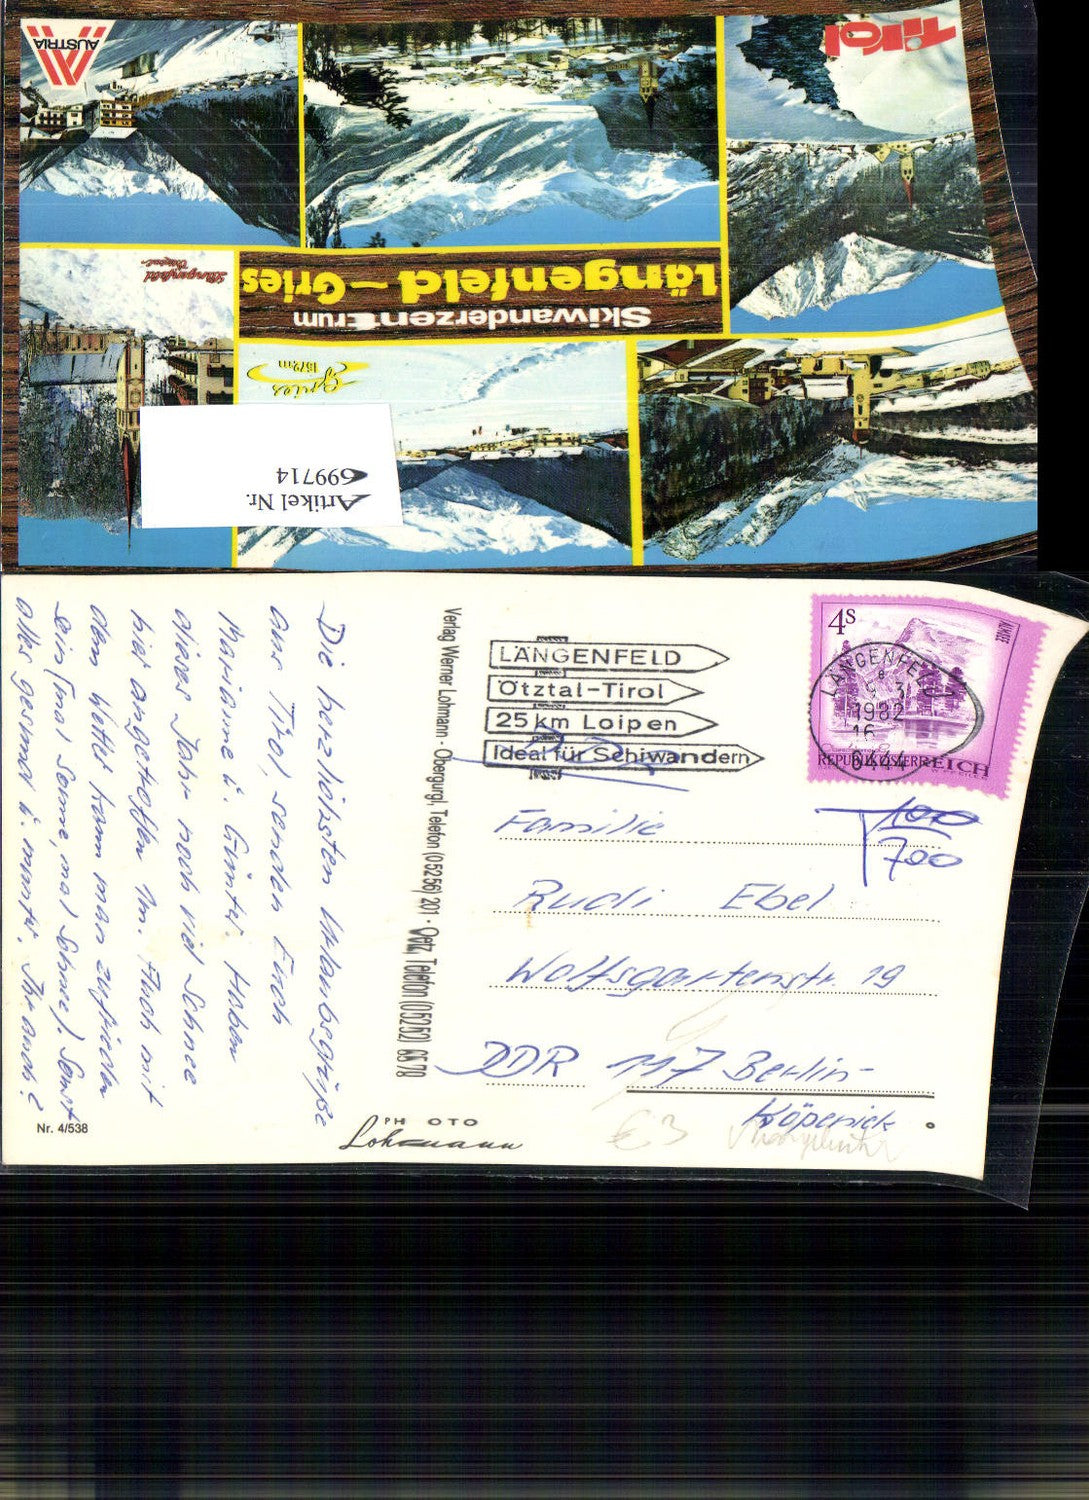 Tirol
AUSTRIA
Längenfeld – Gries
Skiwanderzentrum
Längenfeld
Ötztal
Gries
1572m
Artikel Nr.
699714
Die herzlichsten Urlaubsgrüße
aus Tirol senden Euch
Mariane u. Günter. Haben
dieses Jahr noch viel Schnee
hier angetroffen 1m. Auch mit
dem Wetter kann man zufrieden
sein (mal Sonne, mal Schnee). Sonst
alles gesund u. munter. Ihr auch?
Nr. 4/538
Verlag Werner Lohmann · Obergurgl, Telefon (05256) 201 Oetz, Telefon (05252) 6578
PHOTO
Lohmann
LÄNGENFELD
Ötztal-Tirol
25 km Loipen
Ideal für Schiwandern
4S
REPUBLIK ÖSTERREICH
LÄNGENFELD
1982
16
6444
T 100
700
Familie
Rudi Ebel
Wolfsgartenstr. 19
DDR 117 Berlin-
Köpenick
€ 3